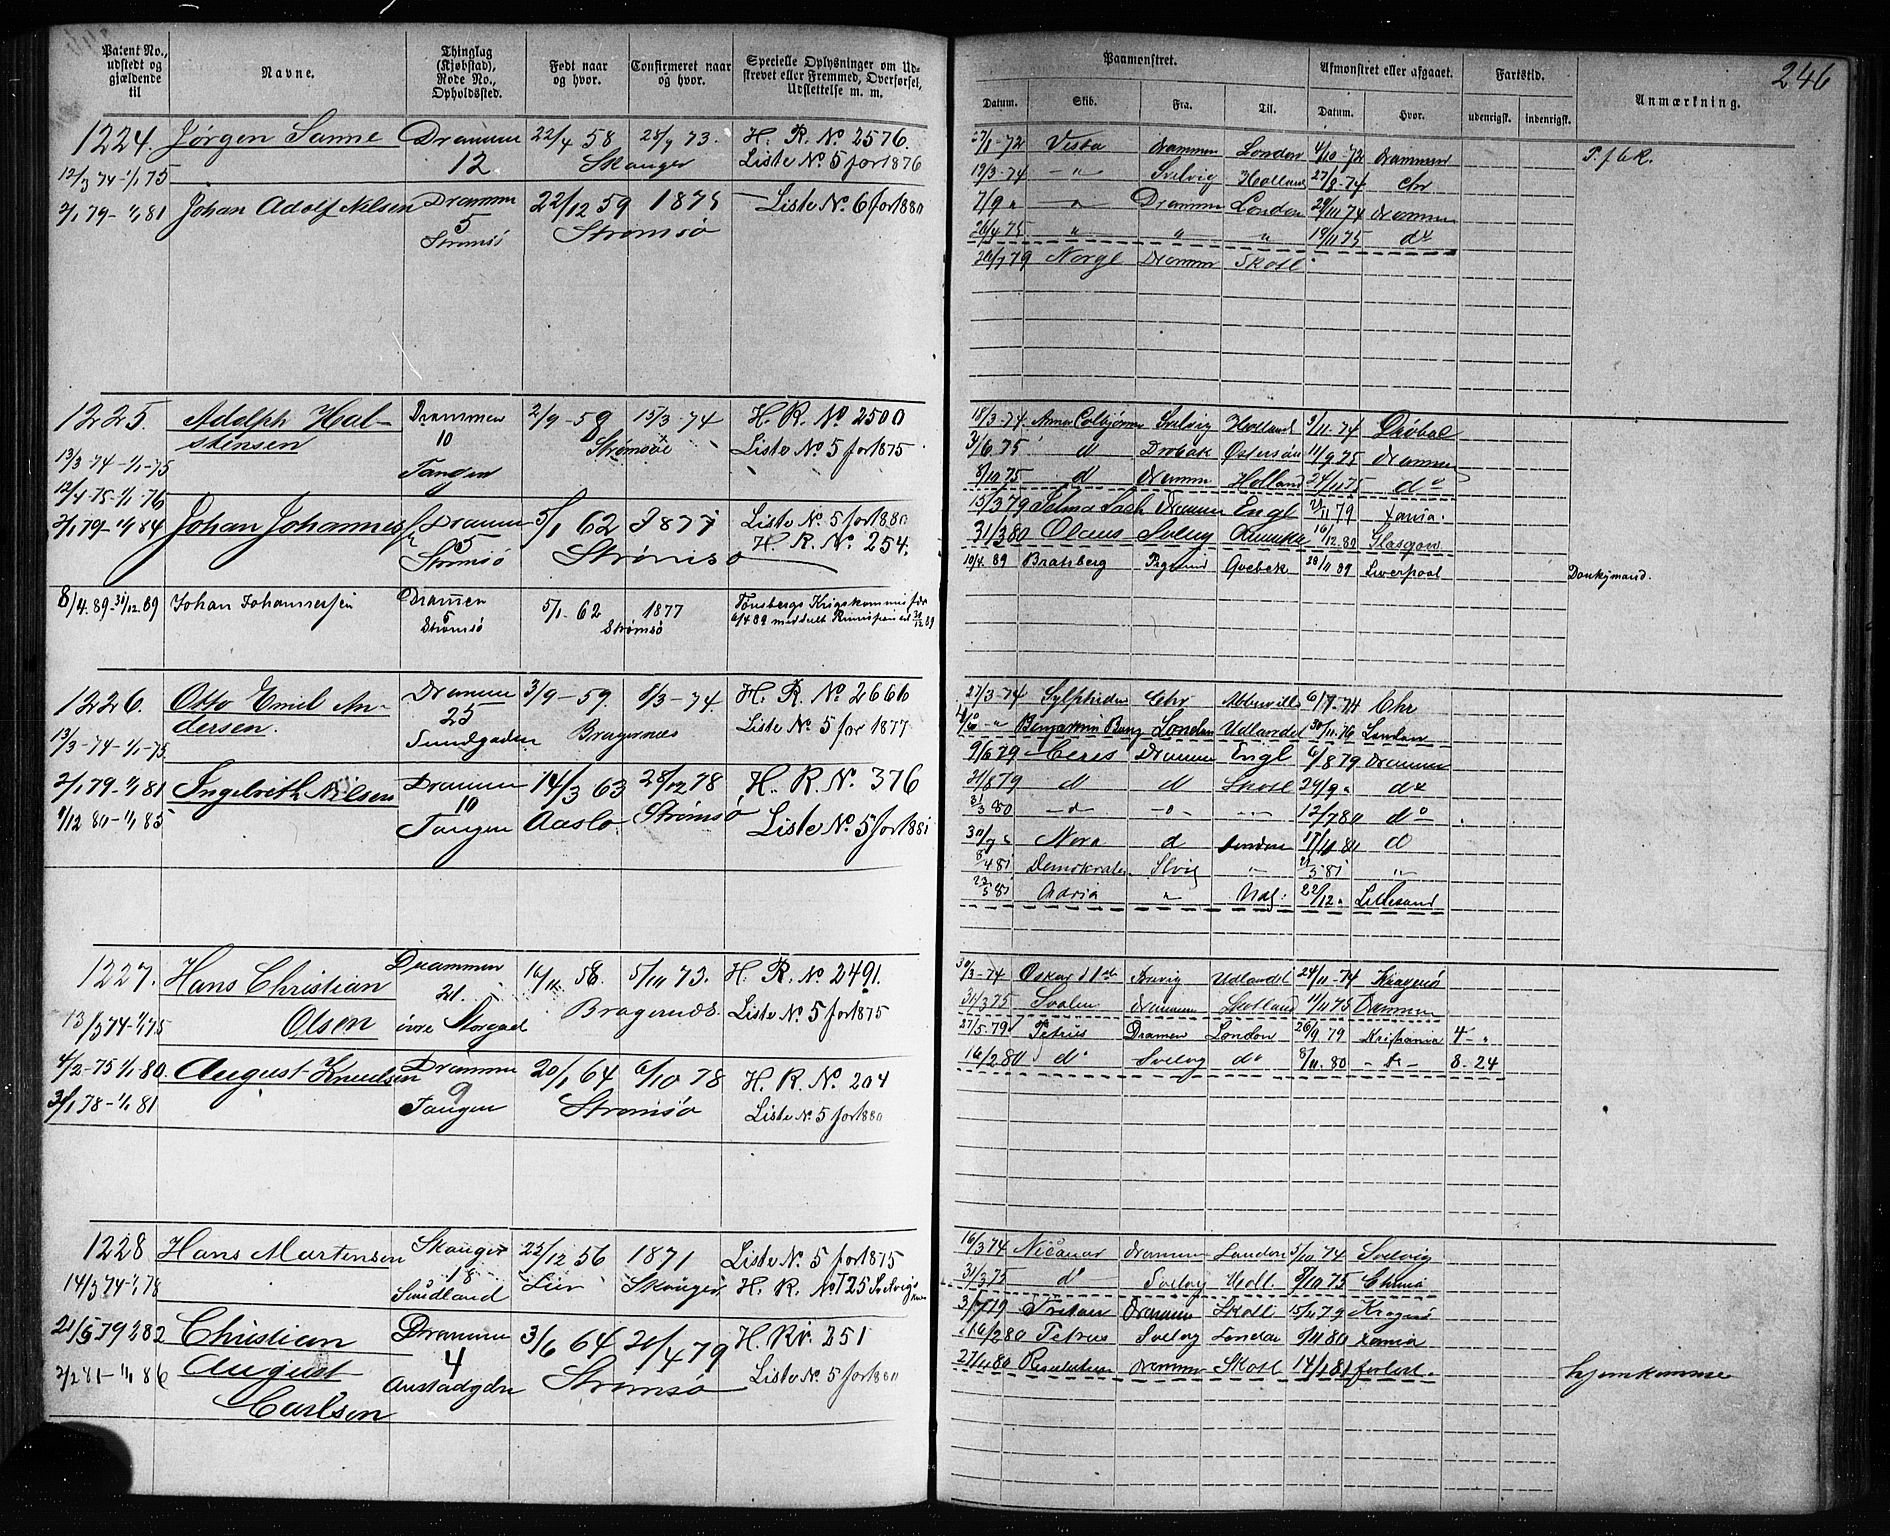 246
Patent No., udstedt og gjældende til
Navne.
Thinglag (Kjøbstad), Rode No., Opholdssted.
Født naar og hvor.
Confirmeret naar og hvor.
Specielle Oplysninger om Udskrevet eller Fremmed, Overførsel, Udslettelse m. m.
Paamønstret.
Afmønstret eller afgaaet.
Fartstid.
Anmærkning.
Datum. Skib. Fra. Til. Datum. Hvor. udenrigsk. indenrigsk.
1224. Jørgen Sanne Drammen 22/4 58 H. R. No 2576.
12 Skauger Liste No. 5 for 1876
12/3 74-1/1 75
2/1 79-1/1 81 Johan Adolf Nilsen Drammen 22/12 59 1875 Liste No. 6 for 1880
5 Strømsø
Strømsø
1225. Adolph Hal- Drammen 2/9-59 15/3-74 H. R. No 2500
stensen 10 Strømsøe Liste No 5 for 1875
13/3-74-1/1-75 Tangen
12/4-75-1/1-76
2/1 79-1/1 84 Johan Johannes Drammen 5/1 62 1877 Liste No. 5 for 1880
5 H. R. No. 254.
Strømsø Strømsø
8/4.89-31/12.89 Johan Johannessen Drammen 5/1.62 1877 Tønsbergs Krigskommis
5 Strømsø
Strømsø
1226. Otto Emil An- Drammen 3/9-59. H. R. No 2666
dersen. 25 Bragernæs Liste No. 5 for 1877
13/3-74-1/1-75
2/1 79-1/1 81 Ingebreth Nilsen Drammen 14/3 63 28/12 78 H. R. No. 376
10 Strømsø
1/12 80-1/1 85 Tangen Aaslo. Liste No. 5 for 1881
1227. Hans Christian Drammen 16/11 58. 5/10 73. H. R. No 2491.
Olsen 21. Bragernæs. Liste No. 5 for 1875
13/3 74-1/1 75 øvre Storgad
4/2-75 1/1 80 August Knudsen Drammen 20/1 64 6/10 78 H. R. No. 204
3/1 78-1/1 81 9 Strømsø Liste No. 5 for 1880
Tangen
1228 Hans Martensen Skauger 22/12 56 1871 Liste No. 5 for 1875
14/3 74-1/1 78 18 Lier Skauger H. R. No 125 Svelvigs
Sundland
21/5 79 Christian Drammen 3/6 64 21/4 79 H. R. 251
2/2 81-1/1 86 August 4 Strømsø Liste No. 5 for 1880
Carlsen
27/1-72 Vesta Drammen London 4/10-72 Drammen
12/3-74 -"- Svelvig Holland 27/8-74 Chr
7/9 " " Drammen London 20/11 74 Drammen
26/4 75 " " " 19/11 75 do
26/7 79 Norge Drammen Skotl
18/3-74 Anna Colbjørnsen Svelvig Holland 9/11-74 Drøbak
3/6 75 d Drøbak Østersøn 11/9 75 Drammen
8/10 75 d Drammen Holland 24/11 75 do
15/3 79 Selma Drammen Engl 79 Xania.
31/3 80 Olaus Svelvig Amerika 16/12.80 Glasgow
10/4.89 Bratsberg Quebek 28/11 89 Liverpool
Donkymand.
27/3-74 Sylphiden Chr Abbeville 6/7-74 Chr
Benjamin Bang London Udlandet 30/11.76 London
9/6 79 Ceres Drammen Engl 6/8 79 Drammen
21/8 79 d d Skotl 29/9 " do
80 -d- -"- 12/7 80 do
30/7 " Nora d London 17/11 80 d
8/4 81 Demokraten
23/5 81 Maria " Udl. 22/12 " Lillesand
30/3-74 Oskar d 1ste Udlandet 24/11-74 Kragerø
31/3 75 Svalen Drammen Skotland 11/11 75 Drammen
27/5-79 Petrus Dramen London 26/9 79 Kristiania 4 - "
16/2 80 do Svelvig do 8/11.80 8-24
16/3 74 Nicanor Drammen London 5/10 74 Svelvig
31/3 75 do Svelvig Holl. 8/10 75
3/7 79 Tristan Drammen Skotl 15/11 79 Kragerø
16/2 80 Petrus Svelvig London 9/11 80 Xania
27/11 80 Resolution Drammen Skotl 14/1 81 forlist.
hjemkomme